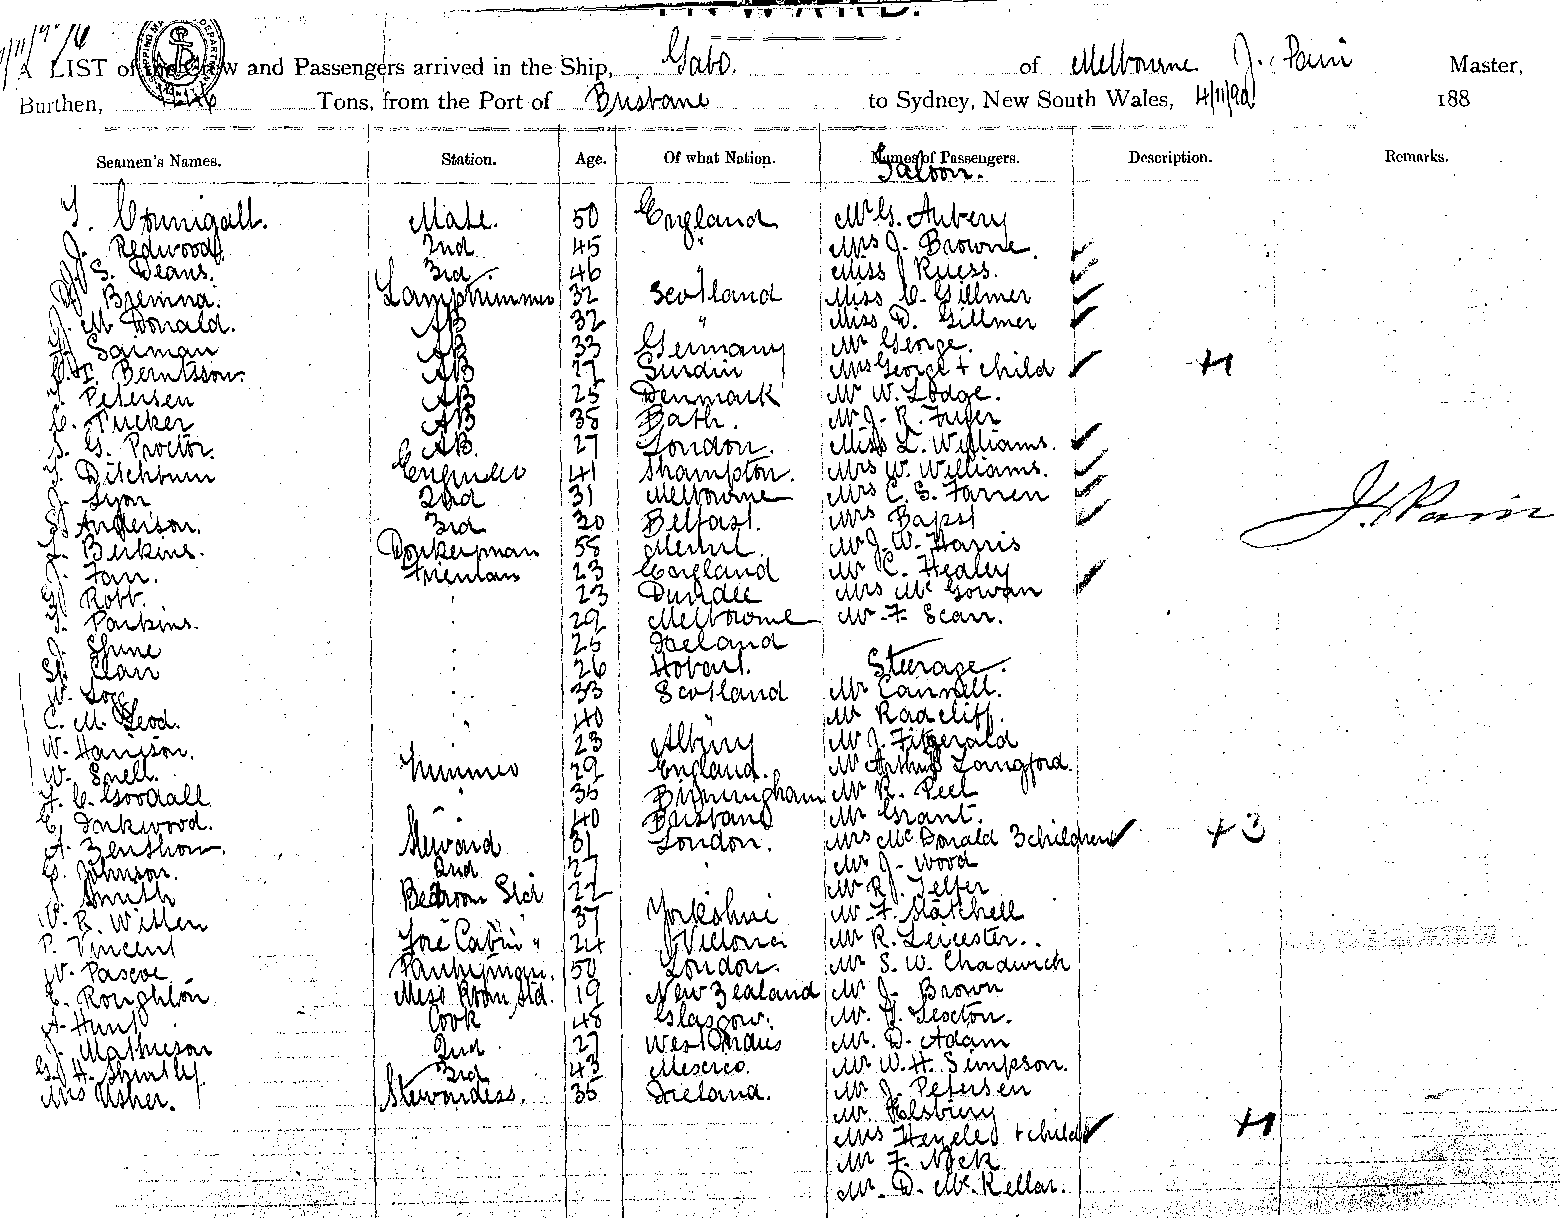 INWARD.
A LIST of the Crew and Passengers arrived in the Ship, Gabo. of Melbourne J. Pain Master,
Burthen, Tons, from the Port of Brisbane to Sydney, New South Wales, 4/11/90 188
Seamen's Names. Station. Age. Of what Nation. Names of Passengers. Description. Remarks.
Saloon.
Mate. 50 England Mr G. Aubery
J. Redwood 2nd 45 " Mrs J. Browne
S. Deans. 3rd 46 Miss J Ruess.
Bremna. Lamptrimmer 32 Scotland Miss C. Gillmer
McDonald. AB 32 " Miss D. Gillmer
Saiman AB 33 Germany Mr George.
Berntsson. AB 27 Mrs George + child +1
Petersen AB 25 Denmark Mr W. Lodge.
C. Tucker AB 38 Bath. Mr J. R. Fryer
G. Proctor. AB. 27 London. Miss L. Williams.
Ditchburn Engineer 41 Shampton. Mrs W. Williams.
Lyon 2nd 31 Melbourne Mrs C. S. Farren
Anderson. 3rd 30 Belfast. Mrs Bapst
J. Pain
Berkins. Donkeyman 58 Mr J. W. Harris
Farr. Fireman 23 England Mr C. Healey
Robb. 23 Dundee Mrs McGowan
Parkins. 29 Melbourne Mr F. Scarr.
J. Shine 25 Ireland
St Clair 26 Hobart. Steerage.
W. 33 Scotland Mr Cannell.
C. McLeod. 40 " Mr Radcliff.
W. Harrison. 23 Albury Mr J. Fitzgerald
W. Snell. Trimmer 29 England. Mr Arthur Langford.
F. C. Goodall 35 Birmingham Mr R. Peel
E. Inkwood. 40 Brisbane Mr Grant.
A. Zenthon. Steward 31 London. Mrs McDonald 3 children +3
Johnson. 2nd 27 Mr J. Wood
Smith Bedroom Std 22 Mr R. J. Telfer
W. R. Witten 37 Yorkshire Mr F. Statchell
P. Vincent Fore Cabin " 24 Victoria Mr R. Leicester.
W. Pascoe Pantryman. 50 London. Mr S. W. Chadwick
E. Roughton Mess Room Std. 19 New Zealand Mr J. Brown
A. Hunt Cook 48 Glasgow. Mr. Sexton.
J. Mathieson 2nd 27 West Indies Mr. D. Adam
G. H. 3rd 43 Mexico. Mr W. H. Simpson.
Mrs Usher. Stewardess. 35 Ireland. Mr J. Petersen
Mr. Helsbury
Mrs + child +1
Mr F. Nick
Mr. D. McKellar.